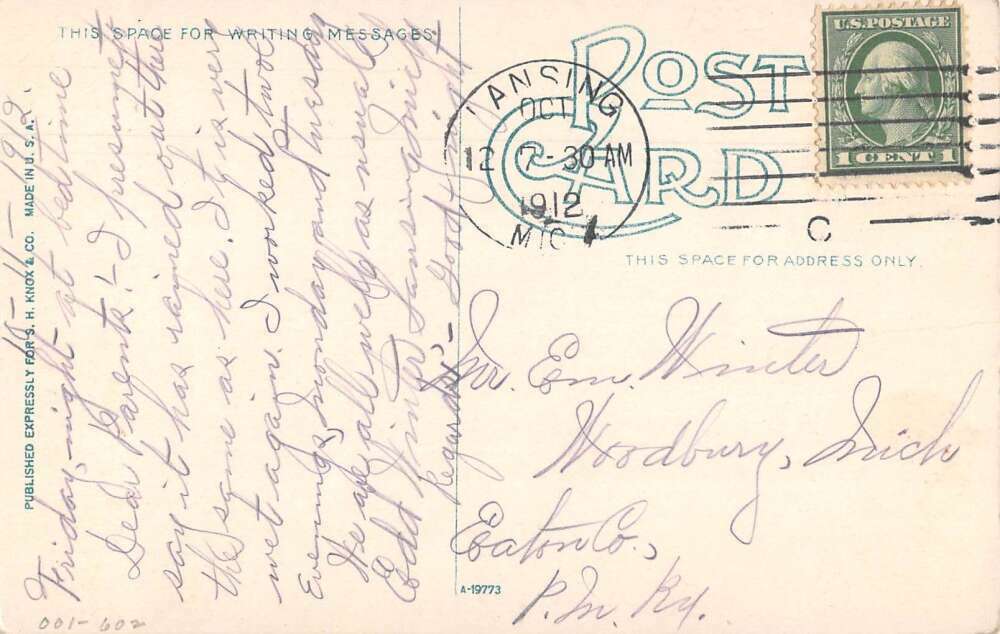 THIS SPACE FOR WRITING MESSAGES
PUBLISHED EXPRESSLY FOR S. H. KNOX & CO. MADE IN U. S. A.
10-11-1912.
Friday-night at bed time
Dear Parents:- I presume
say it has rained out there
the same as here. It is very
wet again. I worked two
Evenings, Monday and Tuesday
We are all well as usual
Edd Winter Lansing Mich
Regards:- Good night
POST CARD
U.S. POSTAGE
1 CENT 1
LANSING
OCT
12 7-30 AM
1912
MICH
C
THIS SPACE FOR ADDRESS ONLY.
Mr. Em. Winter
Woodbury, Mich
Eaton Co.,
P. M. Ry.
A-19773
001-602